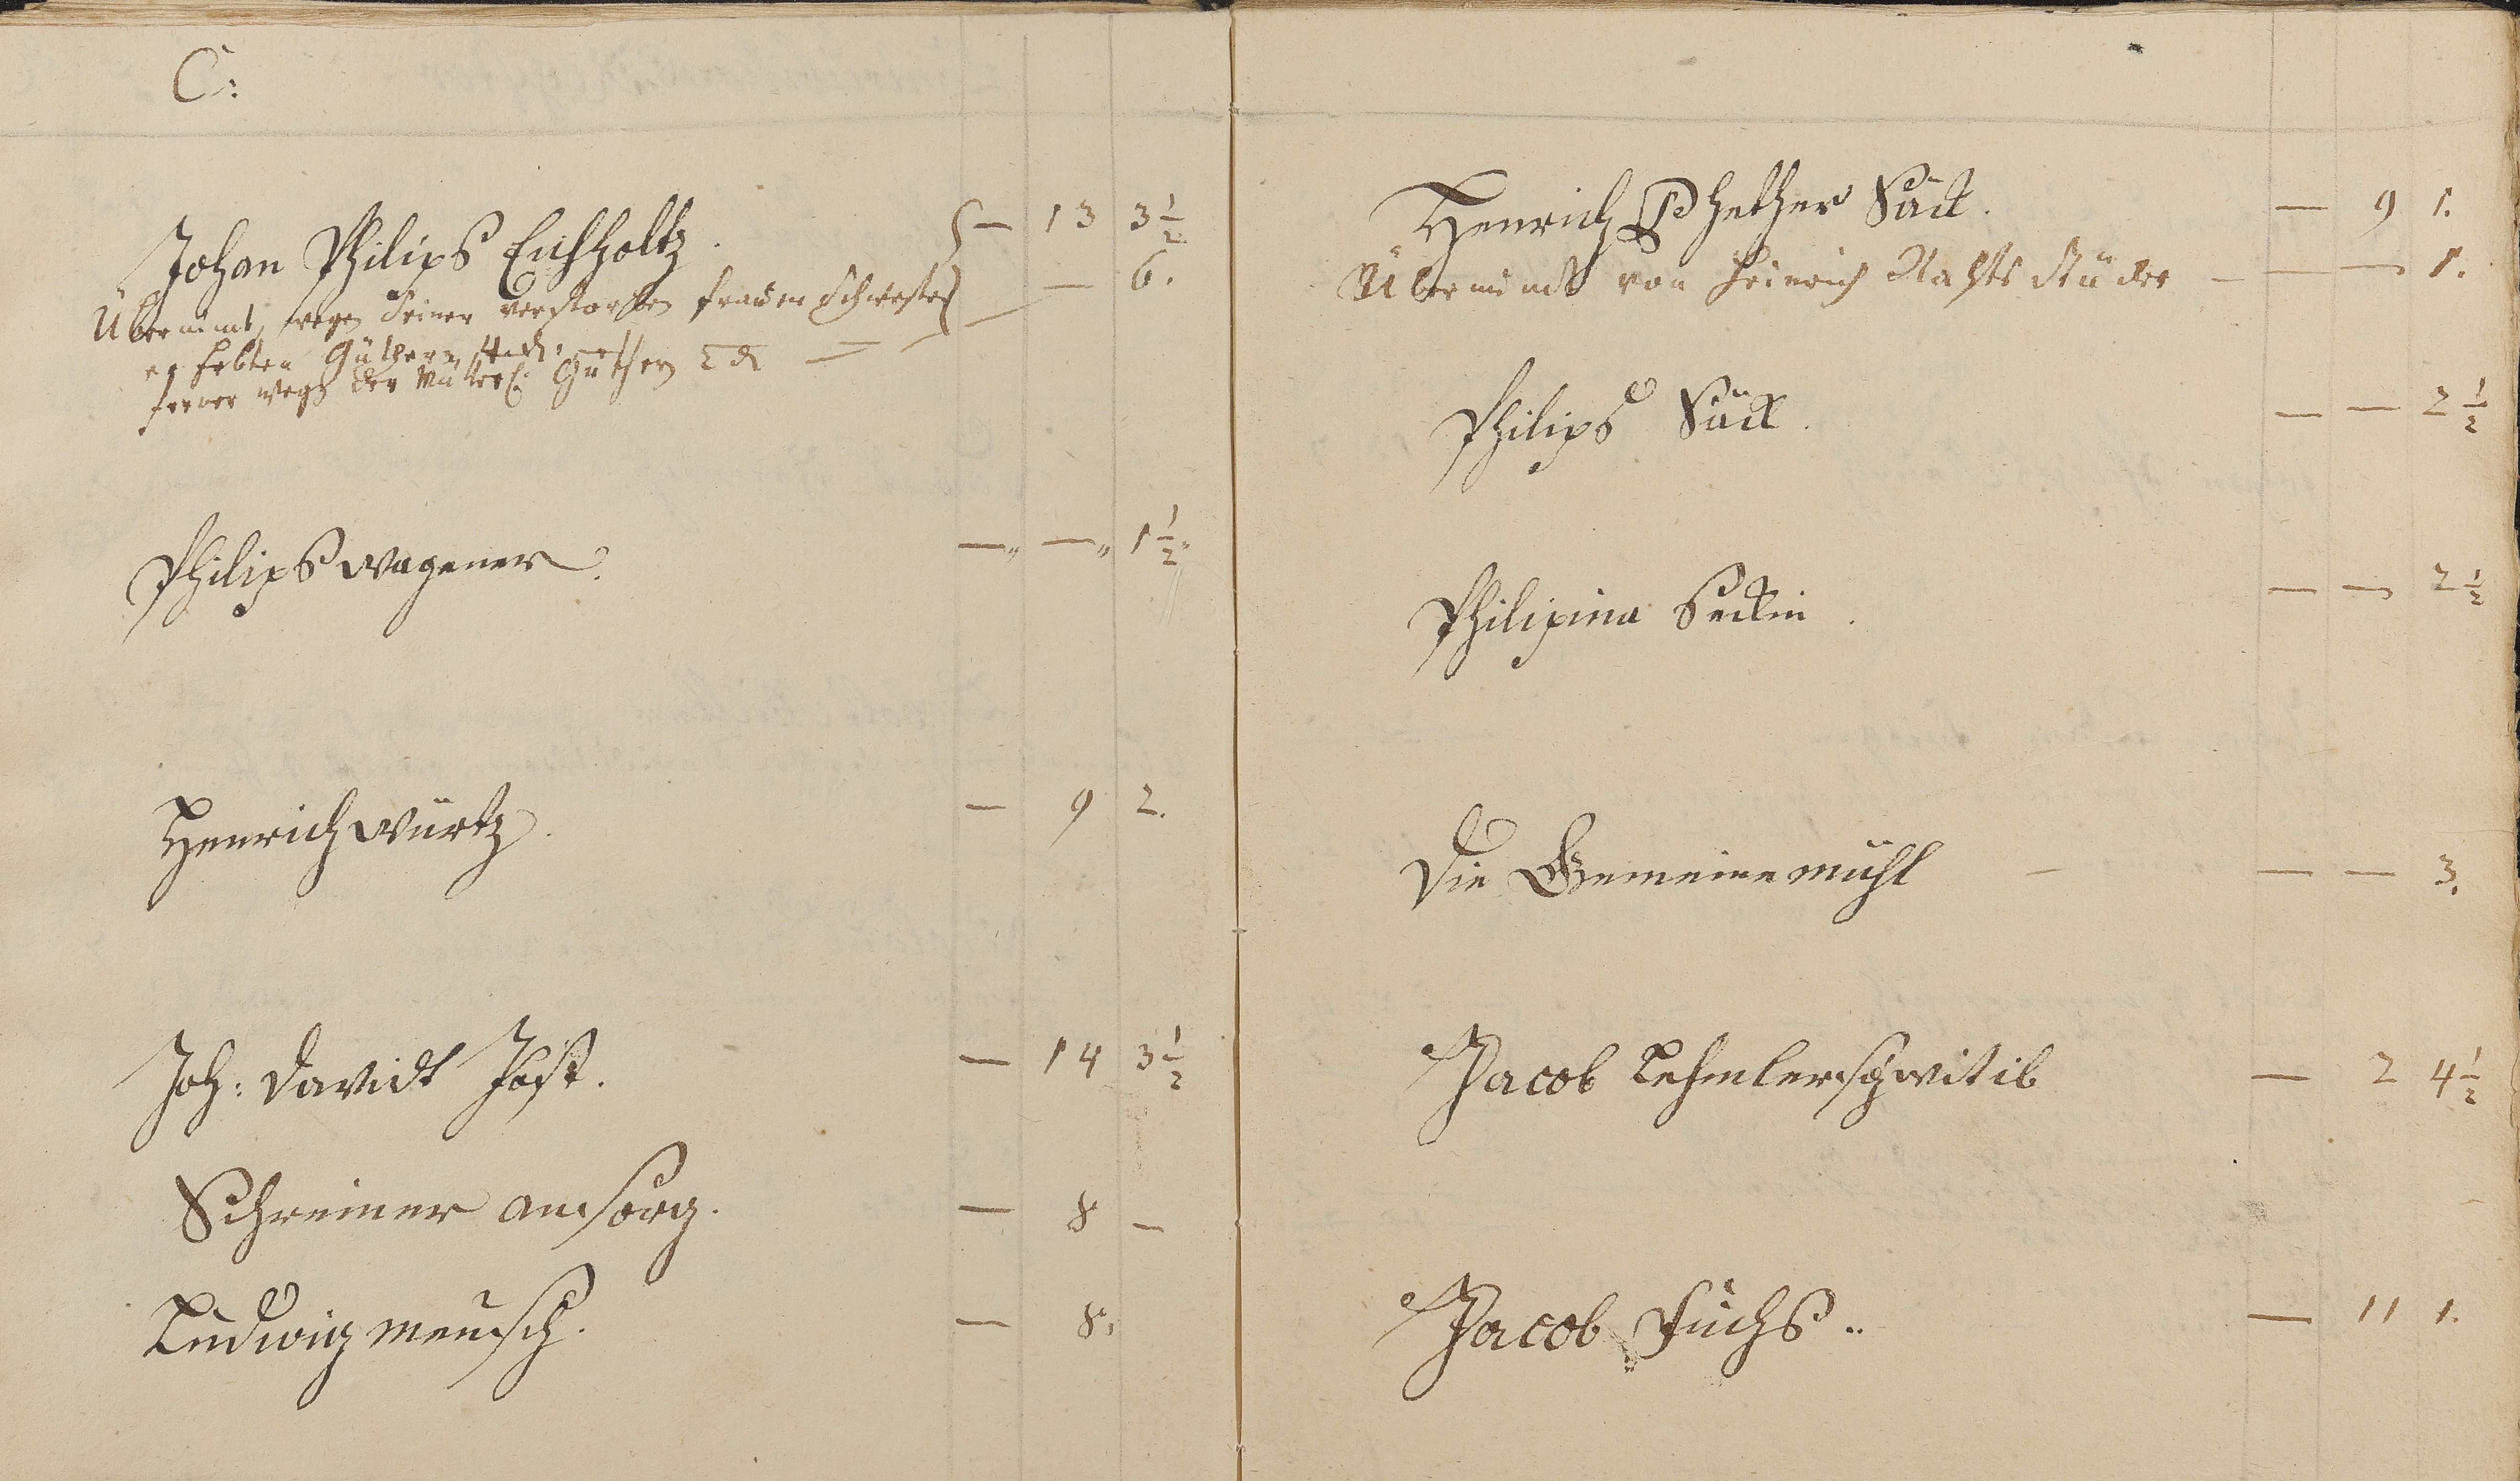 C:
Johan Philips Eichholtz. — 13 3 1/2
Übernimt, wegen seiner verstorben frauen Schwester — 6.
ererbten Güthern 4 d:
ferner wegen der Mütterl: Güthern 2 d —
Philips Wagener. —„ —„ 1 1/2„
Henrich Würtz. — 9 2.
Joh: Davidt Jost. — 14 3 1/2
Schreiner Ansorg. — 8 —
Ludwig Mensch. — 8.
Henrich Phether Säck. — 9 1.
Übernimt von Heinrich — — 1.
Philips Säck. — — 2 1/2
Philipina Seckin. — — 2 1/2
Die Gemeine mühl — — — 3.
Jacob Lehmlers witib — 2 4 1/2
Jacob Fuchs.. — 11 1.